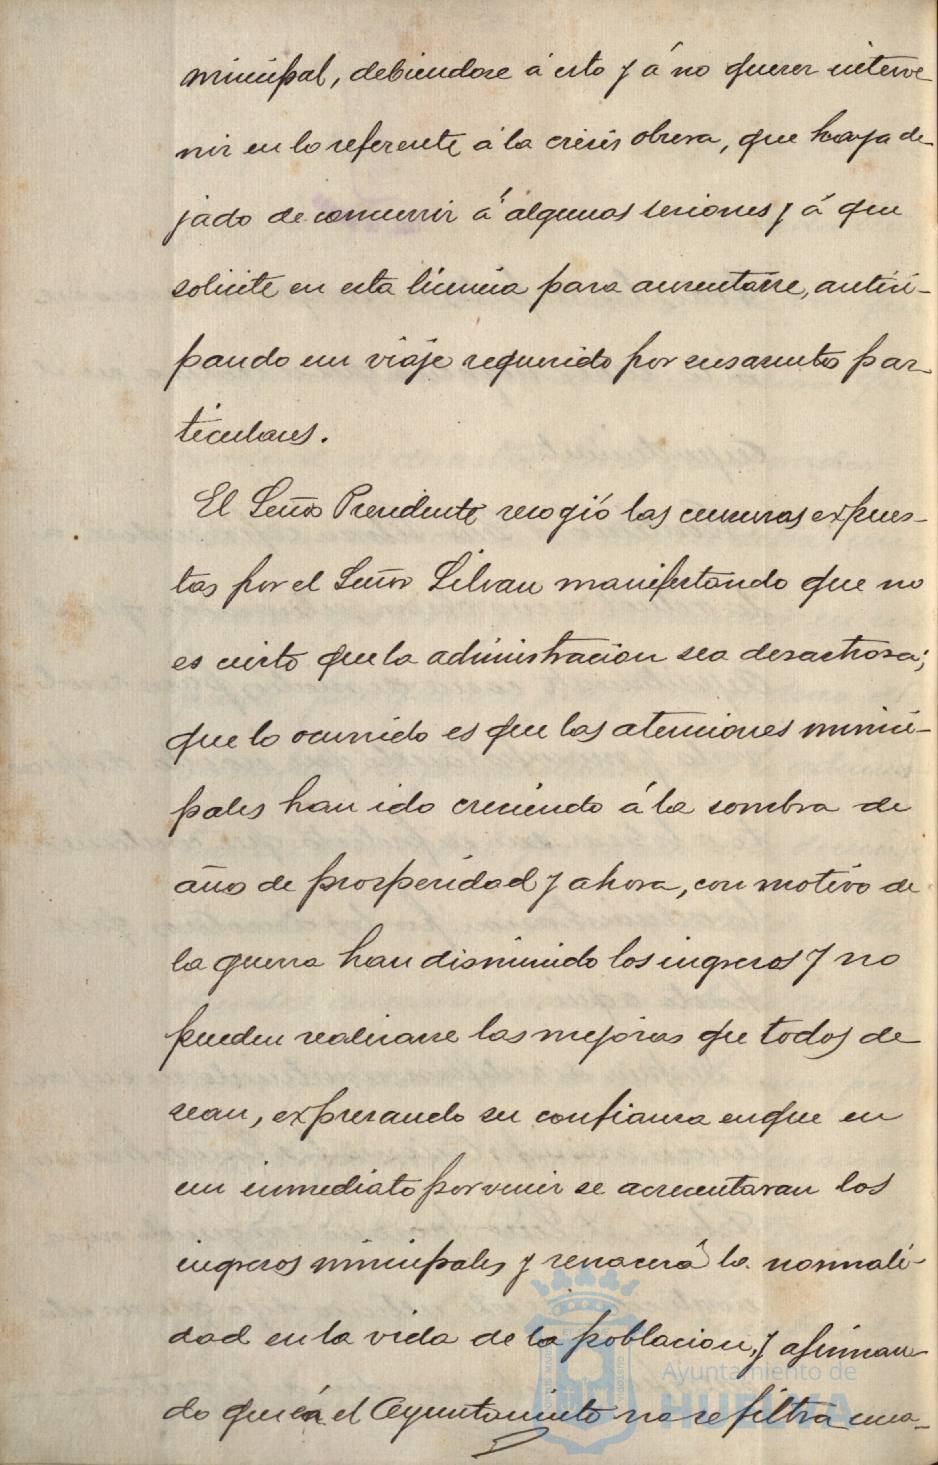 municipal, debiendose á esto y á no querer interve
nir en lo referente á la crisis obrera, que haya de-
jado de concurrir á algunas sesiones y á que
solicite en esta licencia para ausentarse, antici-
pando un viaje requerido por sus asuntos par-
ticulares.
El Señor Presidente recogió las censuras expues-
tas por el Señor Silvan manifestando que no
es cierto que la administracion sea desastrosa;
que lo ocurrido es que las atenciones munici-
pales han ido creciendo á la sombra de
años de prosperidad y ahora, con motivo de
la guerra han disminuido los ingresos y no
pueden realizarse las mejoras que todos de
sean, expresando su confianza en que en
un inmediato porvenir se acrecentaran los
ingresos municipales y renacerá la normali-
dad en la vida de la poblacion, y afirman-
do que en el Ayuntamiento no se filtra una-
Ayuntamiento de
HUELVA